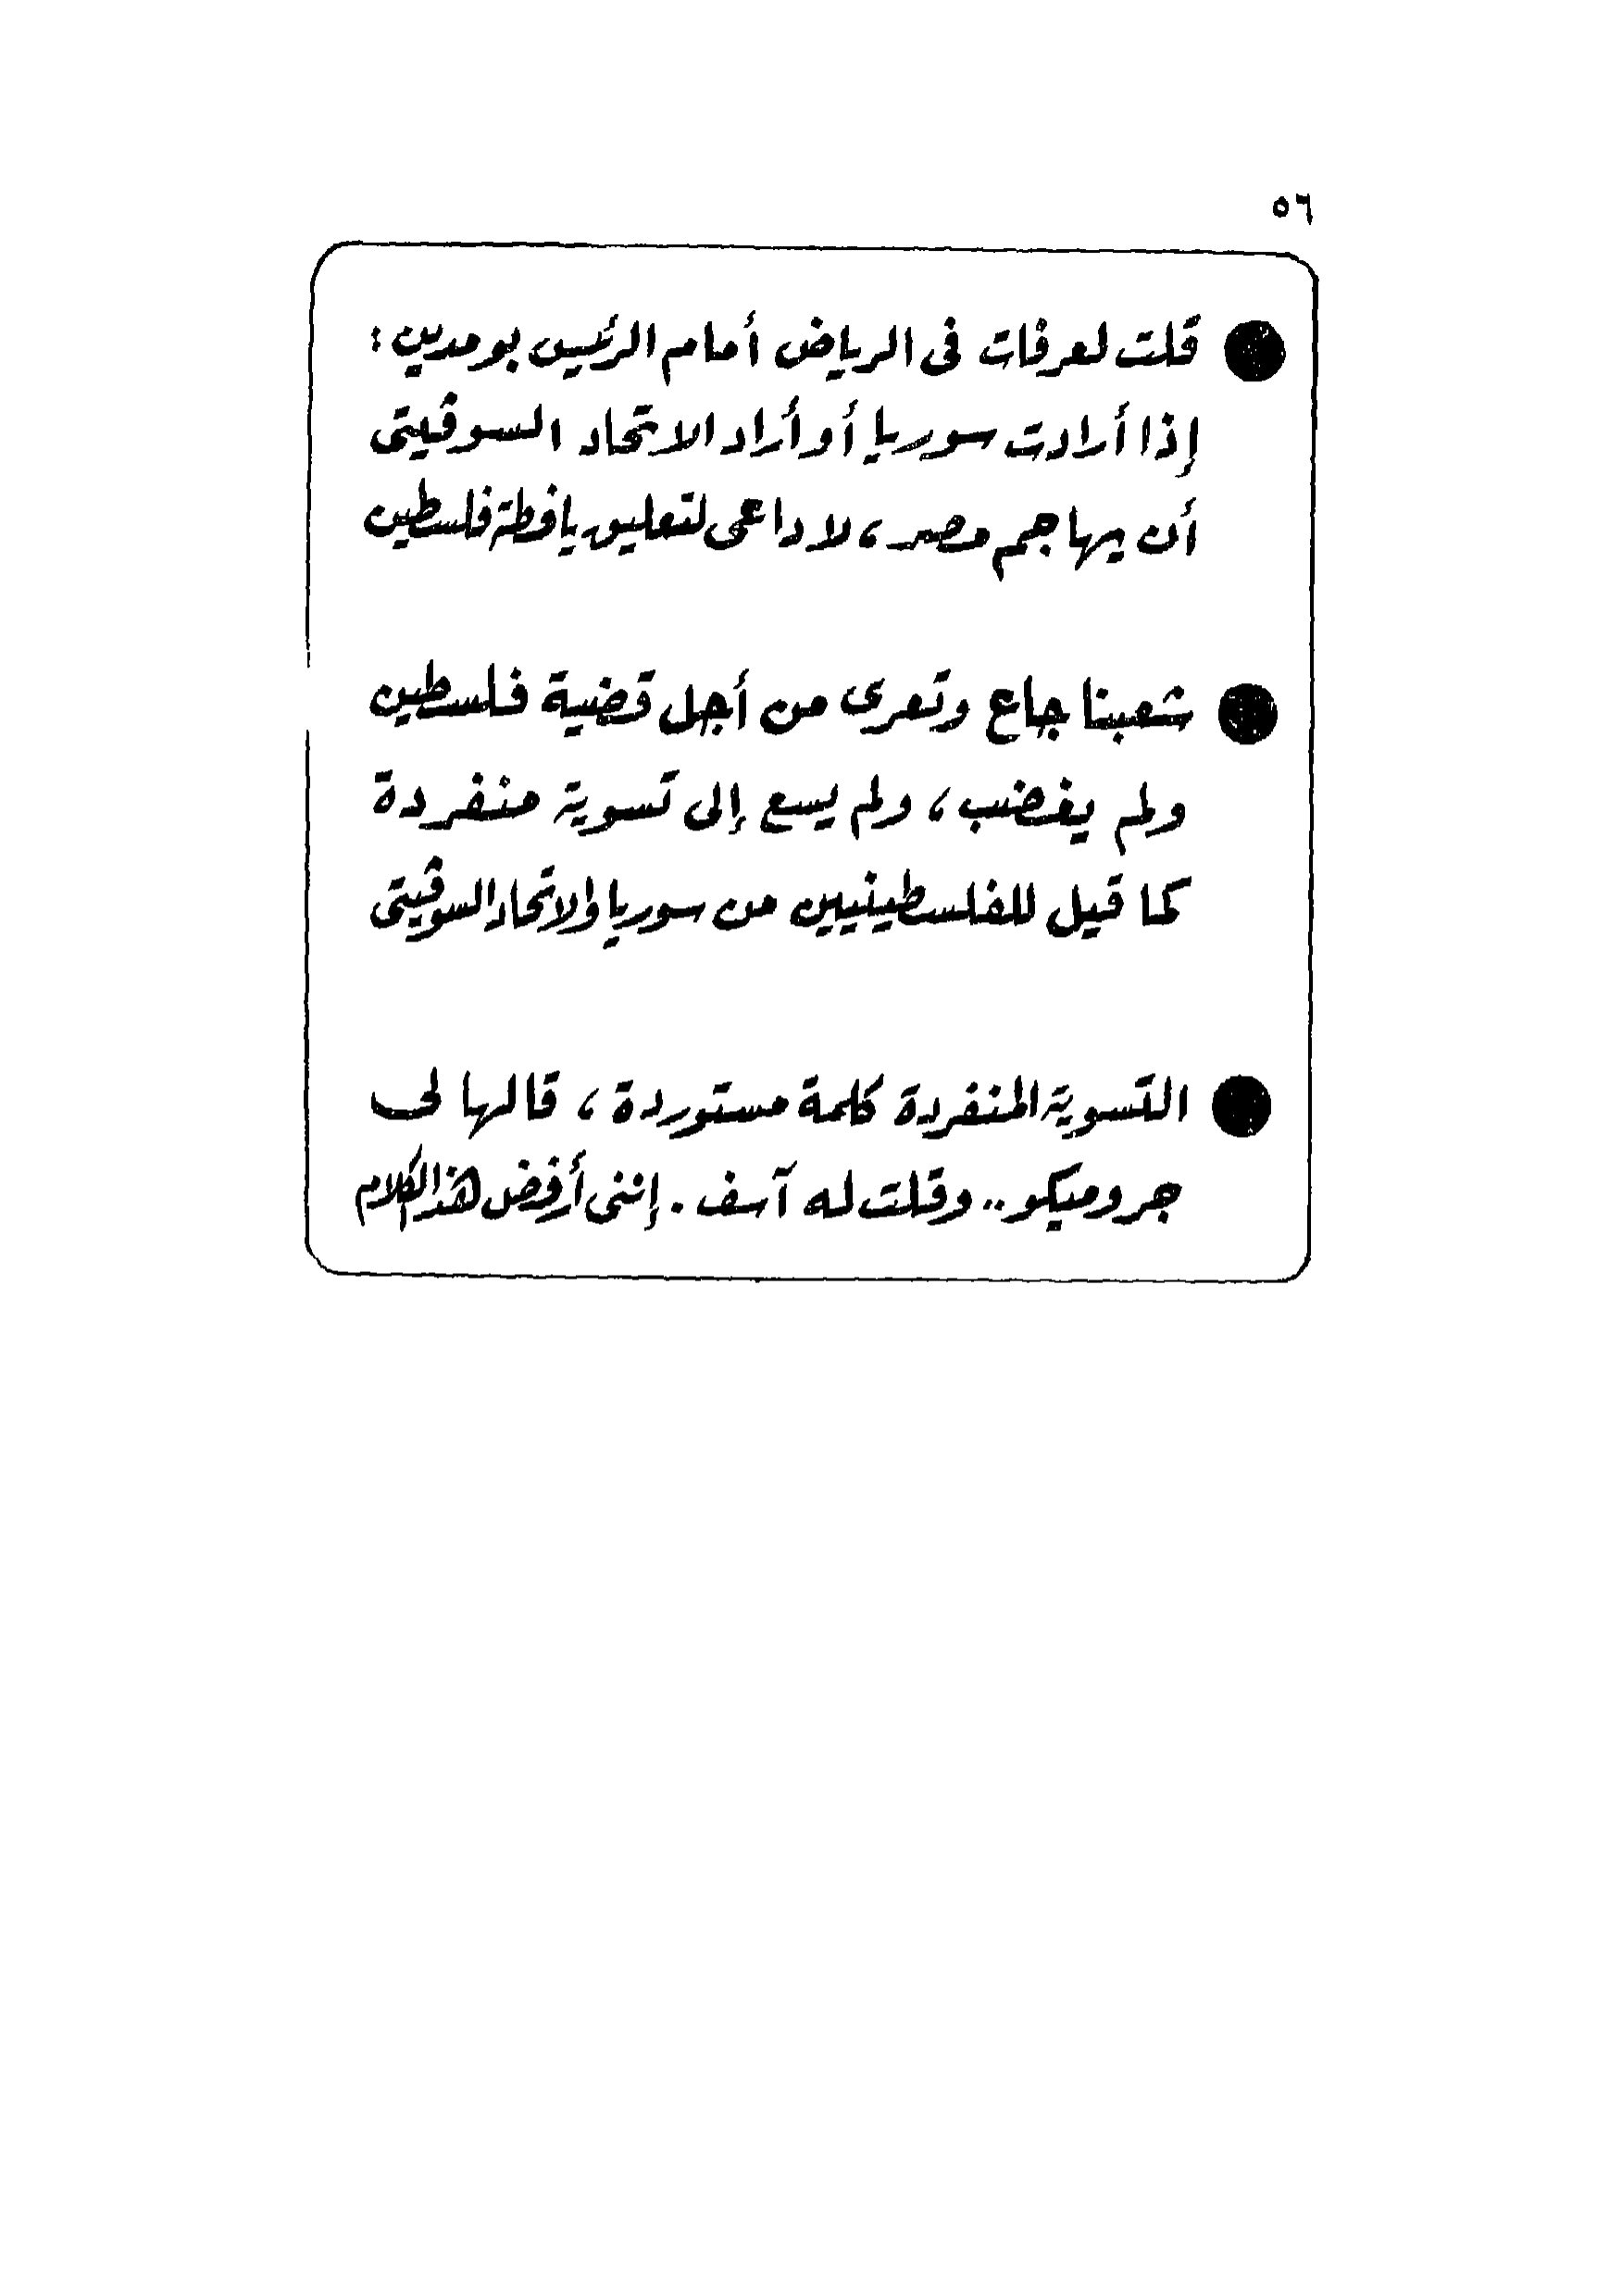 ٥٦
● قلت لعرفات فى الرياض أمام الرئيس بومدين :
إذا أرادت سوريا أو أراد الاتحاد السوڤيتى
أن يهاجم مصر ، لا داعى لتعليق يافطة فلسطين
● شعبنا جاع وتعرى من أجل قضية فلسطين
ولم يغضب ، ولم يسع إلى تسوية منفردة
كما قيل للفلسطينيين من سوريا والاتحاد السوڤيتى
● التسوية المنفردة كلمة مستوردة ، قالها لى
جروميكو .. وقلت له آسف . إننى أرفض هذا الكلام